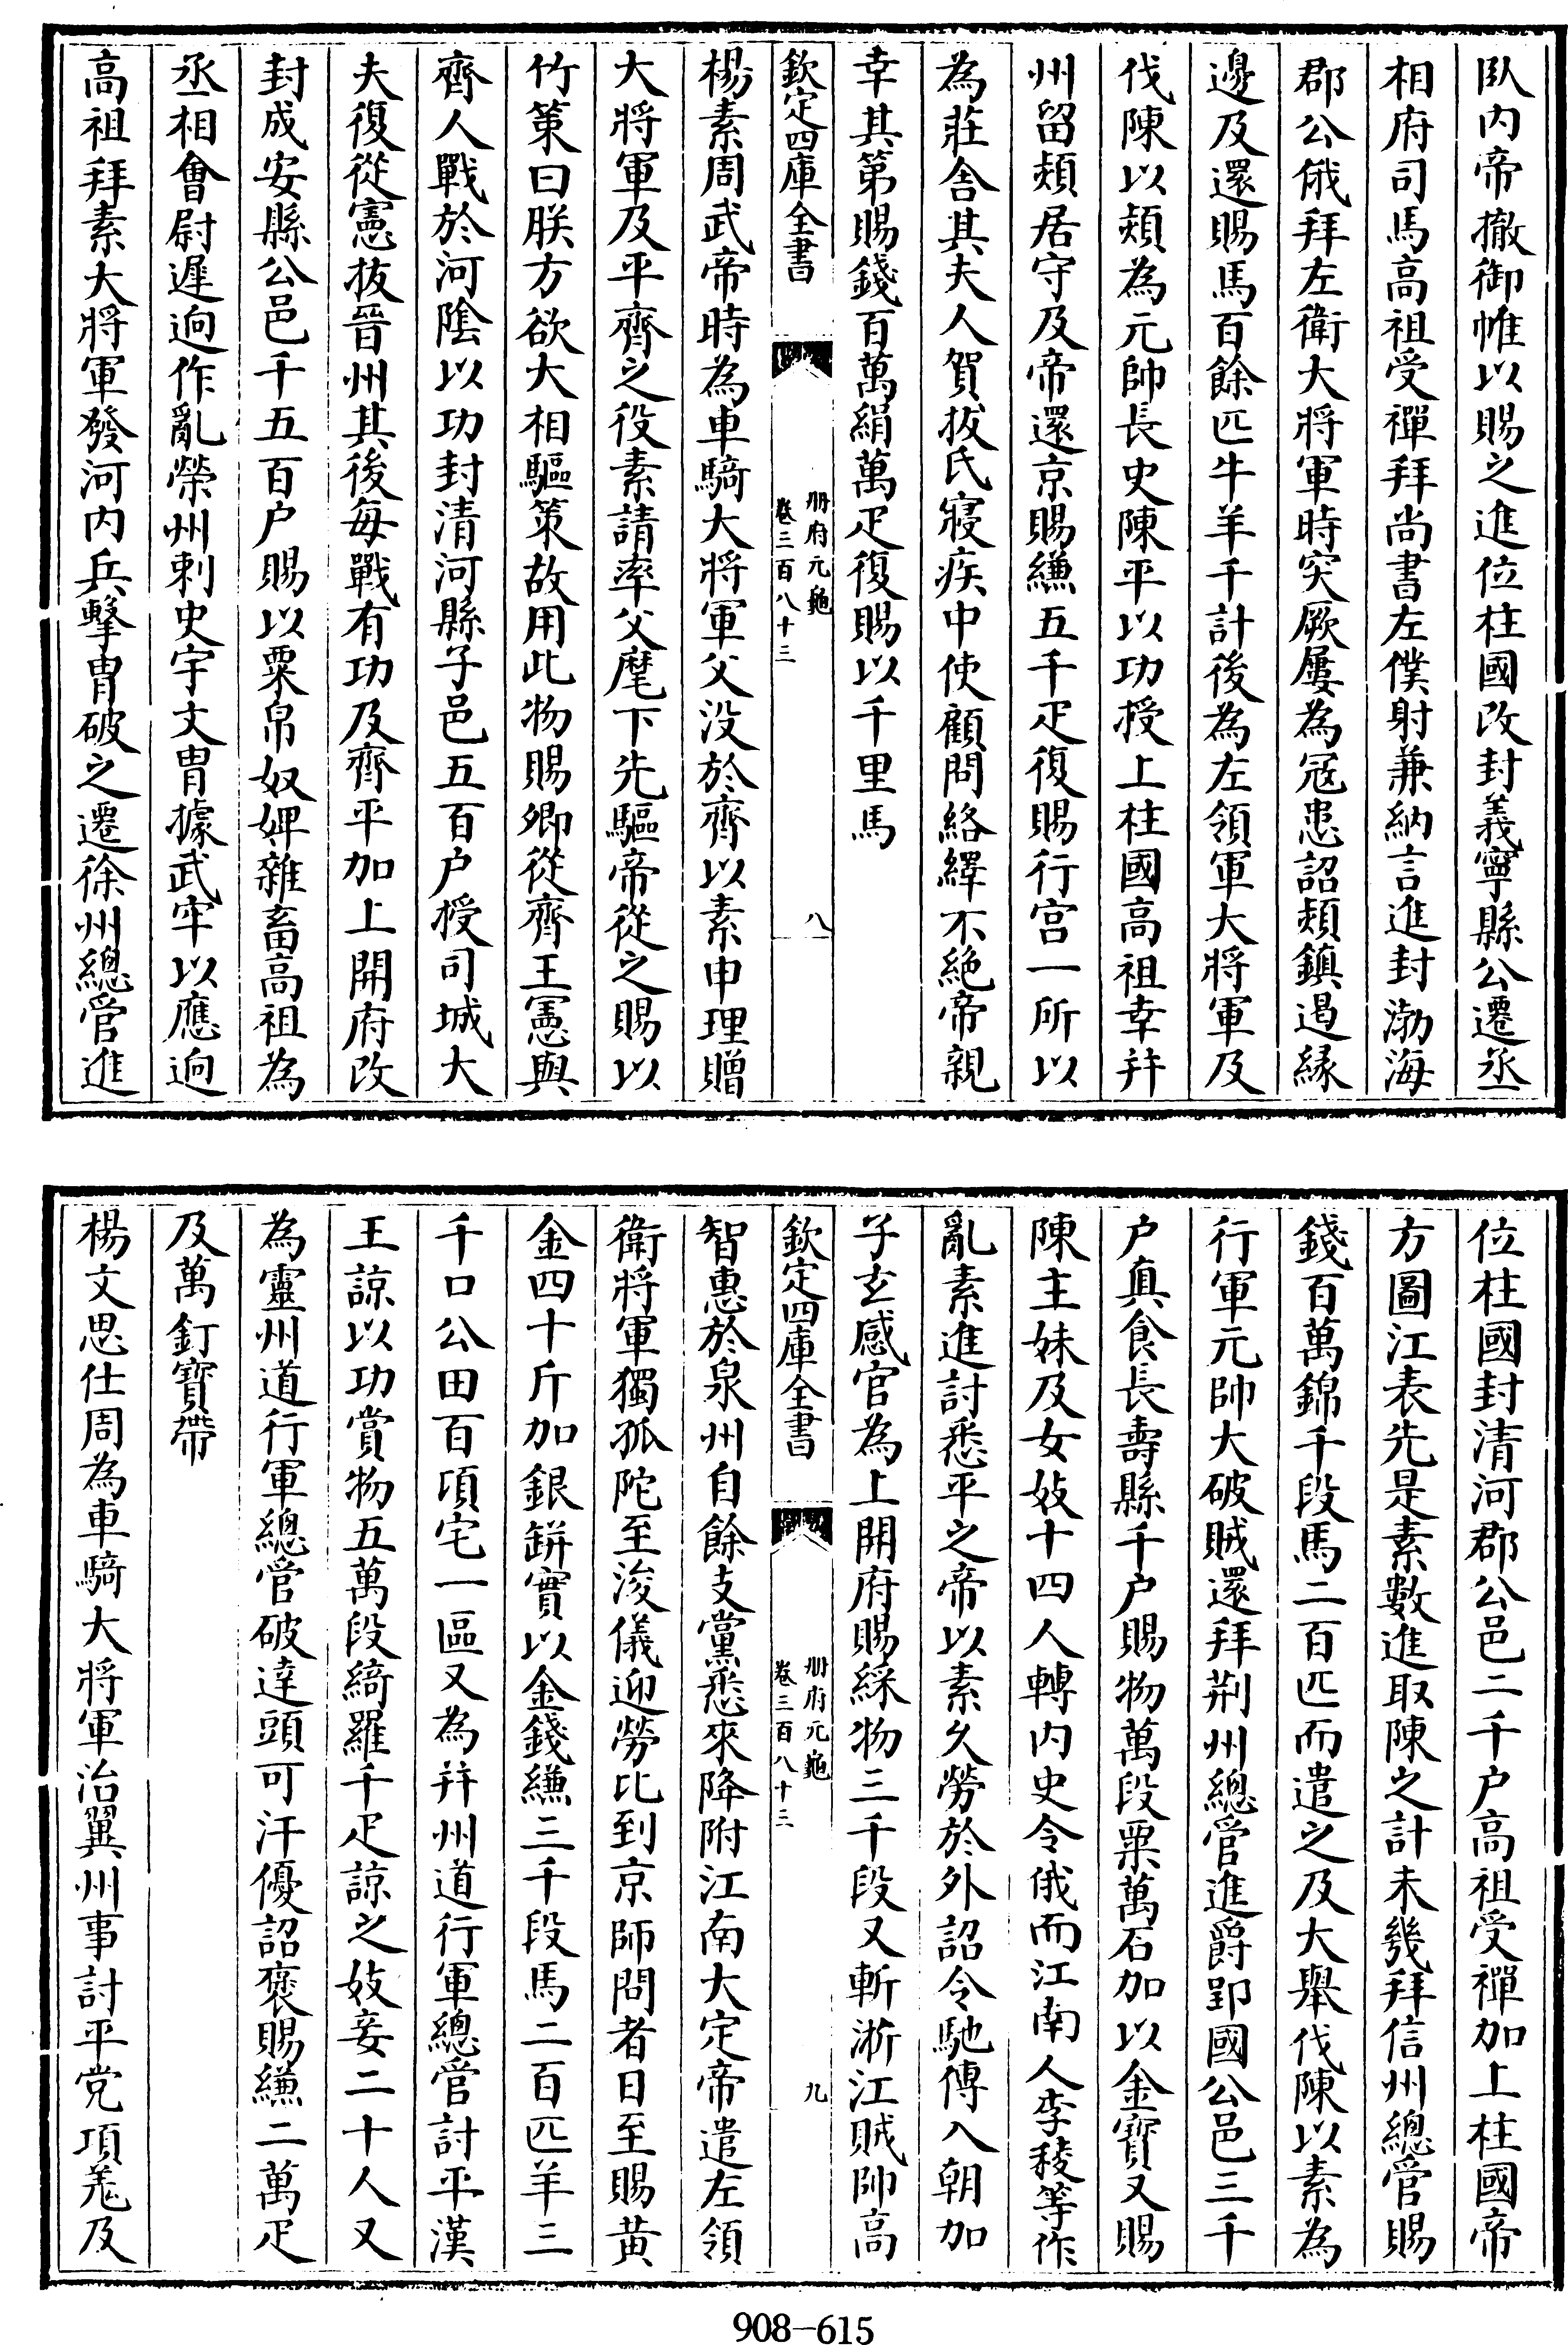 臥内帝撤御帷以賜之進位柱國改封義寧縣公遷丞
相府司馬高祖受禪拜尚書左僕射兼納言進封渤海
郡公俄拜左衛大將軍時突厥屢為冦患詔熲鎮遏縁
邊及還賜馬百餘匹牛羊千計後為左領軍大將軍及
伐陳以熲為元帥長史陳平以功授上柱國高祖幸并
州留熲居守及帝還京賜縑五千疋復賜行宫一所以
為莊舎其夫人賀拔氏寢疾中使顧問絡繹不絶帝親
幸其第賜錢百萬絹萬疋復賜以千里馬
欽定四庫全書
册府元龜
卷三百八十三
八
楊素周武帝時為車騎大將軍父没於齊以素申理贈
大將軍及平齊之役素請率父麾下先驅帝從之賜以
竹䇿曰朕方欲大相驅策故用此物賜卿從齊王憲與
齊人戰於河隂以功封清河縣子邑五百户授司城大
夫復從憲抜晉州其後每戰有功及齊平加上開府改
封成安縣公邑千五百户賜以粟帛奴婢雜畜高祖為
丞相會尉遲逈作亂滎州刺史宇文胄據武牢以應逈
高祖拜素大將軍發河内兵擊胄破之遷徐州總管進
位柱國封清河郡公邑二千户高祖受禪加上柱國帝
方圖江表先是素數進取陳之計未幾拜信州總管賜
錢百萬錦千段馬二百匹而遣之及大舉伐陳以素為
行軍元帥大破賊還拜荆州總管進爵郢國公邑三千
户真食長壽縣千户賜物萬段粟萬石加以金寶又賜
陳主妹及女妓十四人轉内史令俄而江南人李稜等作
亂素進討悉平之帝以素久勞於外詔令馳傳入朝加
子玄感官為上開府賜綵物三千段又斬浙江賊帥高
欽定四庫全書
册府元龜
卷三百八十三
九
智惠於泉州自餘支黨悉來降附江南大定帝遣左領
衛將軍獨孤陀至浚儀迎勞比到京師問者日至賜黄
金四十斤加銀缾實以金錢縑三千段馬二百匹羊三
千口公田百項宅一區又為并州道行軍總管討平漢
王諒以功賞物五萬段綺羅千疋諒之妓妾二十人又
為靈州道行軍總管破達頭可汗優詔褒賜縑二萬疋
及萬釘寶帶
楊文思仕周為車騎大將軍治翼州事討平党項羌及
908-615